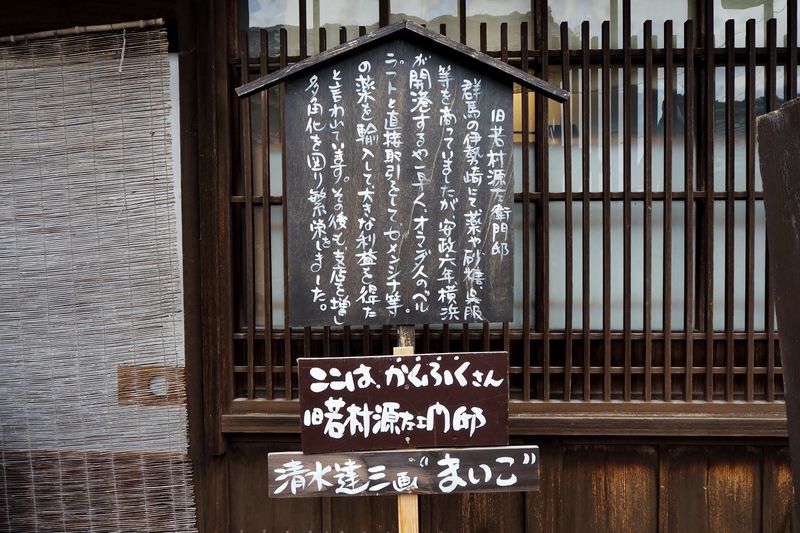 旧若村源左衛門邸
群馬の伊勢崎にて薬や砂糖、呉服
等を商っていましたが、安政六年、横浜
が開港するや一早く、オランダ人のベル
ラートと直接取引をしてセメンシナ等
の薬を輸入して大きな利益を得た
と言われています。その後も、支店を増し
多角化を図り繁栄をしました。
ここは、がくふくさん
旧若村源左エ門邸
清水達三画“まいご”